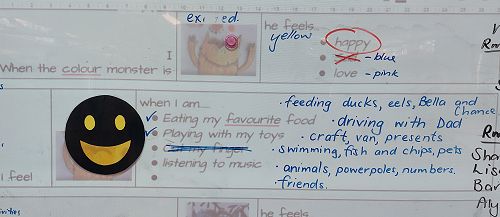 exi ed.
he feels
yellow
happy
I
- blue
When the colour monster is
love - pink
when I am....
feeding ducks, eels, Bella and Chance
Eating my favourite food
driving with Dad
Playing with my toys
craft, van, presents
my finger
swimming, fish and chips, pets
listening to music
animals, powerpoles, numbers.
I feel
friends.
Sha
Lisa
Bar
Aly
he feels